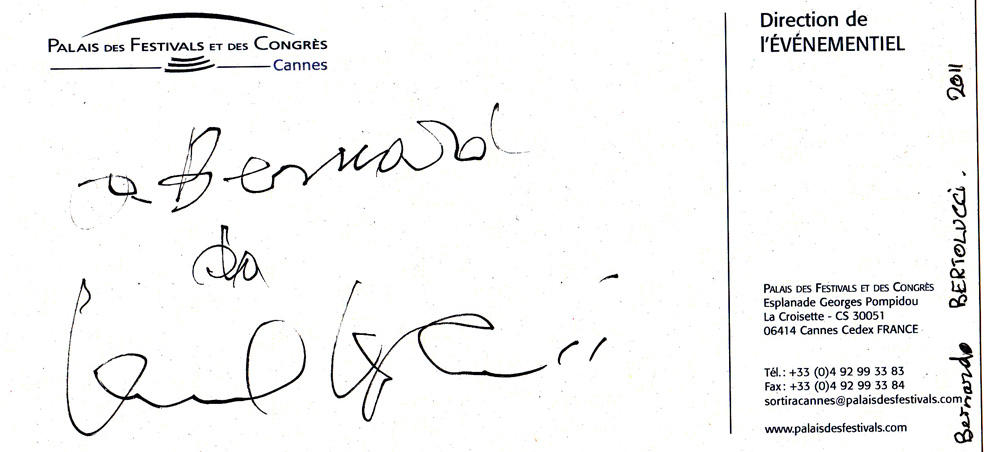 PALAIS DES FESTIVALS ET DES CONGRÈS
Cannes
a Bernard
da
Direction de
l'ÉVÉNEMENTIEL
PALAIS DES FESTIVALS ET DES CONGRÈS
Esplanade Georges Pompidou
La Croisette - CS 30051
06414 Cannes Cedex FRANCE
Tél.: +33 (0)4 92 99 33 83
Fax: +33 (0)4 92 99 33 84
sortiracannes@palaisdesfestivals.com
www.palaisdesfestivals.com
Bernardo BERTOLUCCi. 2011